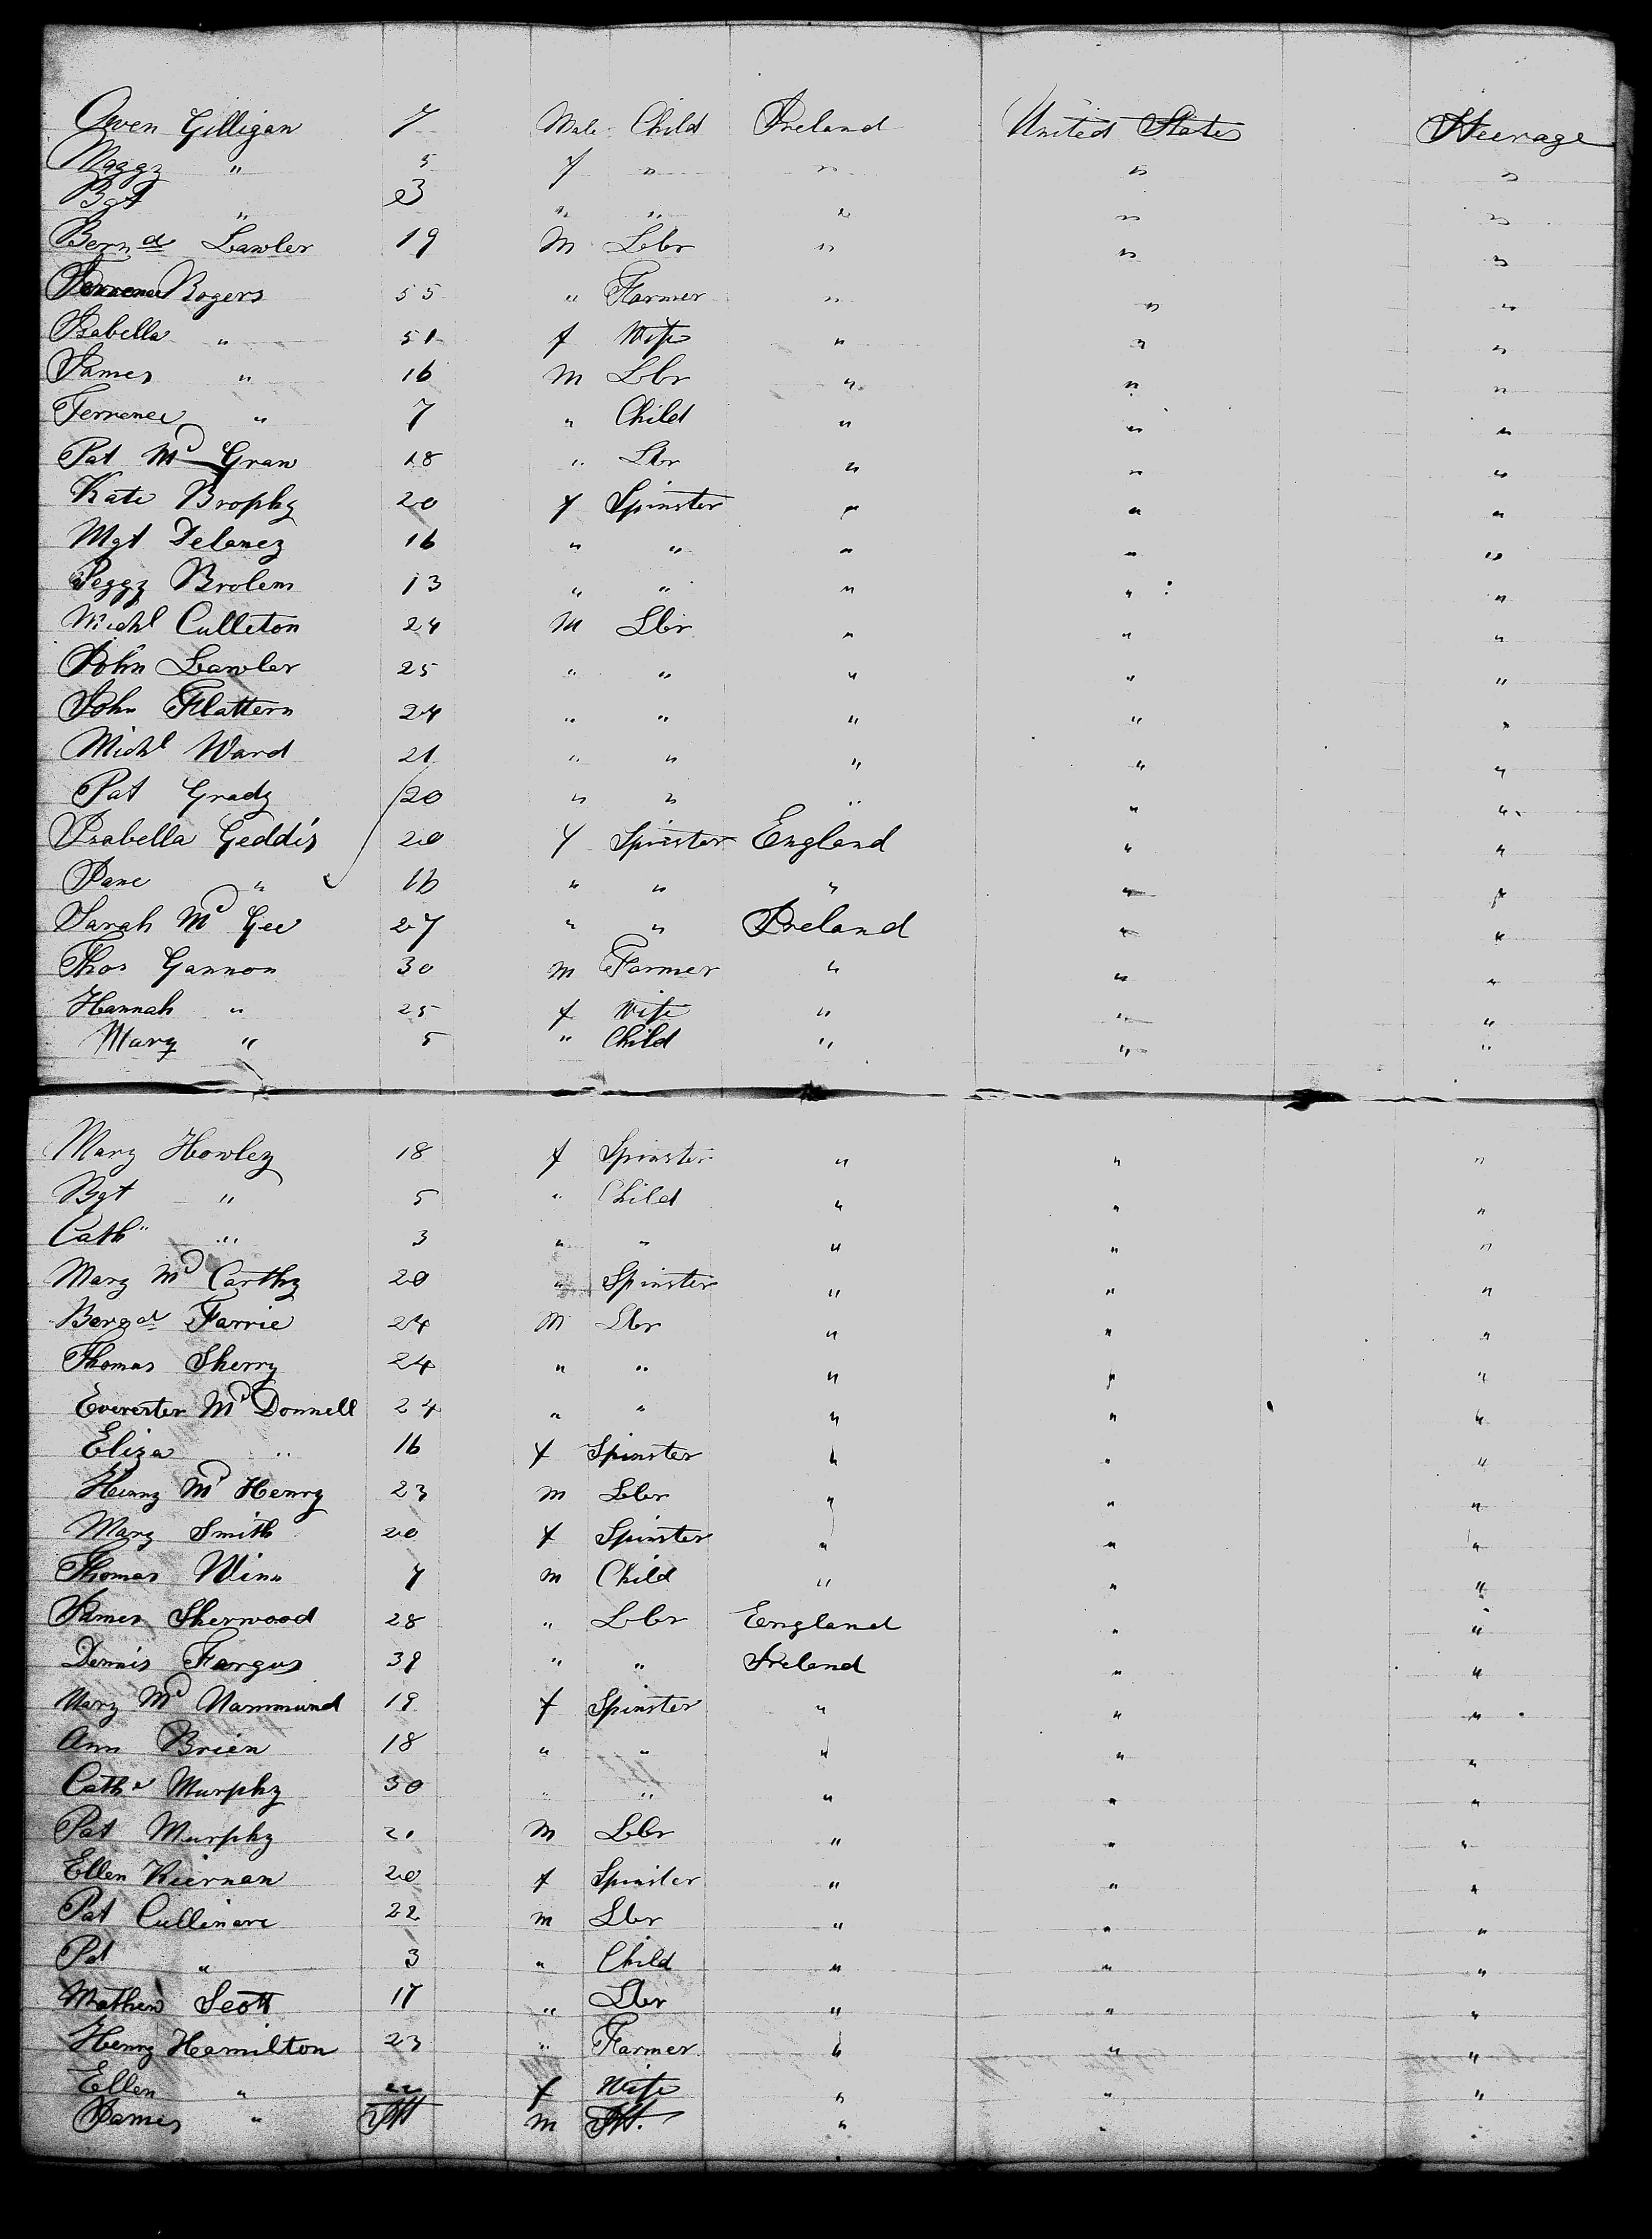 Owen Gilligan 7 Male Child Ireland United States Steerage
Maggy " 5 f " " " "
Bgt " 3 " " " " "
Bernd Lawler 19 M Lbr " " "
Terrence Rogers 55 " Farmer " " "
Isabella " 51 f Wife " " "
James " 16 M Lbr " " "
Terrence " 7 " Child " " "
Pat Mc Gran 18 " Lbr " " "
Kate Brophy 20 f Spinster " " "
Mgt Delaney 16 " " " " "
Peggy Brolem 13 " " " " "
Michl Culleton 24 M Lbr " " "
John Lawler 25 " " " " "
John Flattern 24 " " " " "
Michl Ward 21 " " " " "
Pat Grady 20 " " " " "
Isabella Geddis 20 f Spinster England " "
Jane " 16 " " " " "
Sarah Mc Gee 27 " " Ireland " "
Thos Gannon 30 m Farmer " " "
Hannah " 25 f Wife " " "
Mary " 5 " Child " " "
Mary Howley 18 f Spinster " " "
Bgt " 5 " Child " " "
Cath " 3 " " " " "
Mary Mc Carthy 20 " Spinster " " "
Bernd Farrie 24 M Lbr " " "
Thomas Sherry 24 " " " " "
Everester Mc Donnell 24 " " " " "
Eliza " 16 f Spinster " " "
Henry Mc Henry 23 m Lbr " " "
Mary Smith 20 f Spinster " " "
Thomas Winn 7 m Child " " "
James Sherwood 28 " Lbr England " "
Dennis Fergus 39 " " Ireland " "
Mary Mc Nammund 19 f Spinster " " "
Ann Brien 18 " " " " "
Cathe Murphy 30 " " " " "
Pat Murphy 21 M Lbr " " "
Ellen Kiernan 20 f Spinster " " "
Pat Cullinare 22 m Lbr " " "
Pat " 3 " Child " " "
Mathew Scott 17 " Lbr " " "
Henry Hamilton 23 " Farmer " " "
Ellen " 22 f Wife " " "
James " Inft m Inft. " " "